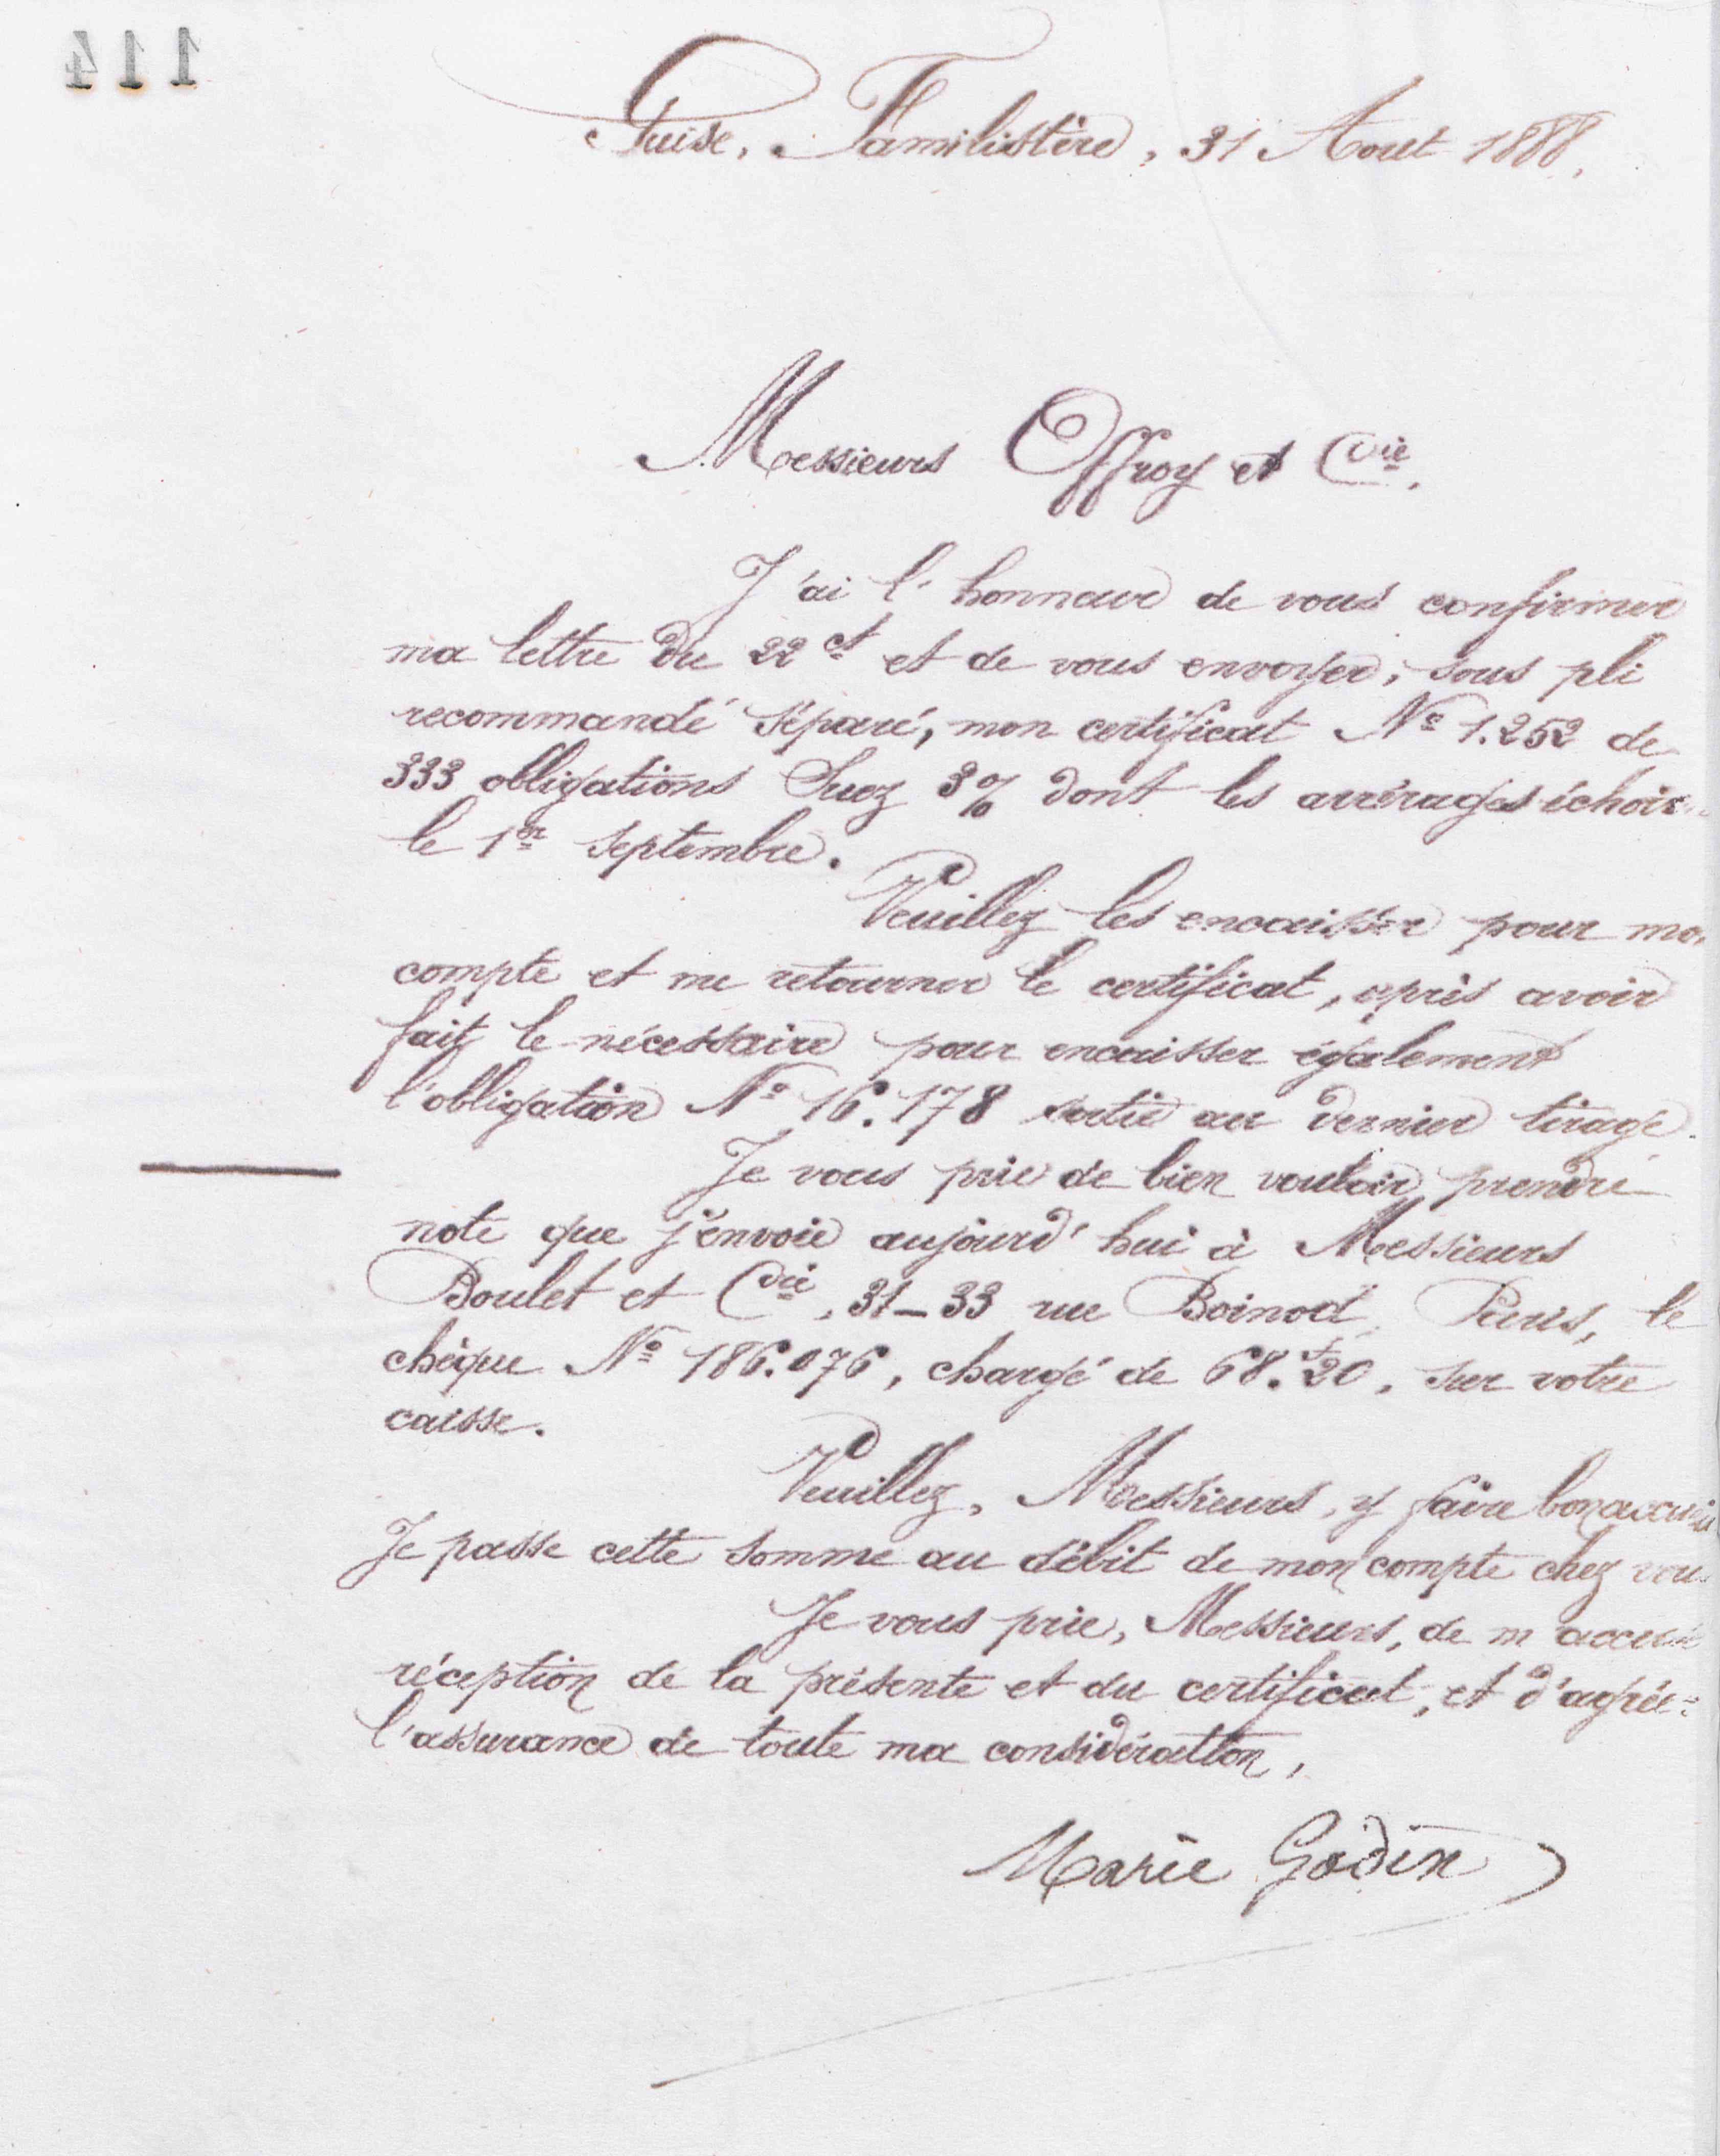 114
Guise, Familistère, 31 Aout 1888,
Messieurs Offroy et Cie,
J'ai l'honneur de vous confirmer
ma lettre du 22 ct et de vous envoyer, sous pli
recommandé séparé, mon certificat No 1.252 de
333 obligations Suez 3% dont les arrérages échoir
le 1er septembre.
Veuillez les encaisser pour mo
compte et me retourner le certificat, après avoir
fait le nécessaire pour encaisser également
l'obligation No 16.178 sortie au dernier tirage.
Je vous prie de bien vouloir prendre
note que j'envoie aujourd'hui à Messieurs
Boulet et Cie, 31-33 rue Boinod, Paris, le
chèque No 186.076, chargé de 68.f20, sur votre
caisse.
Veuillez, Messieurs, y faire bon accueil
Je passe cette somme au débit de mon compte chez vou
Je vous prie, Messieurs, de m'accusé
réception de la présente et du certificat, et d'agrée
l'assurance de toute ma considération,
Marie Godin